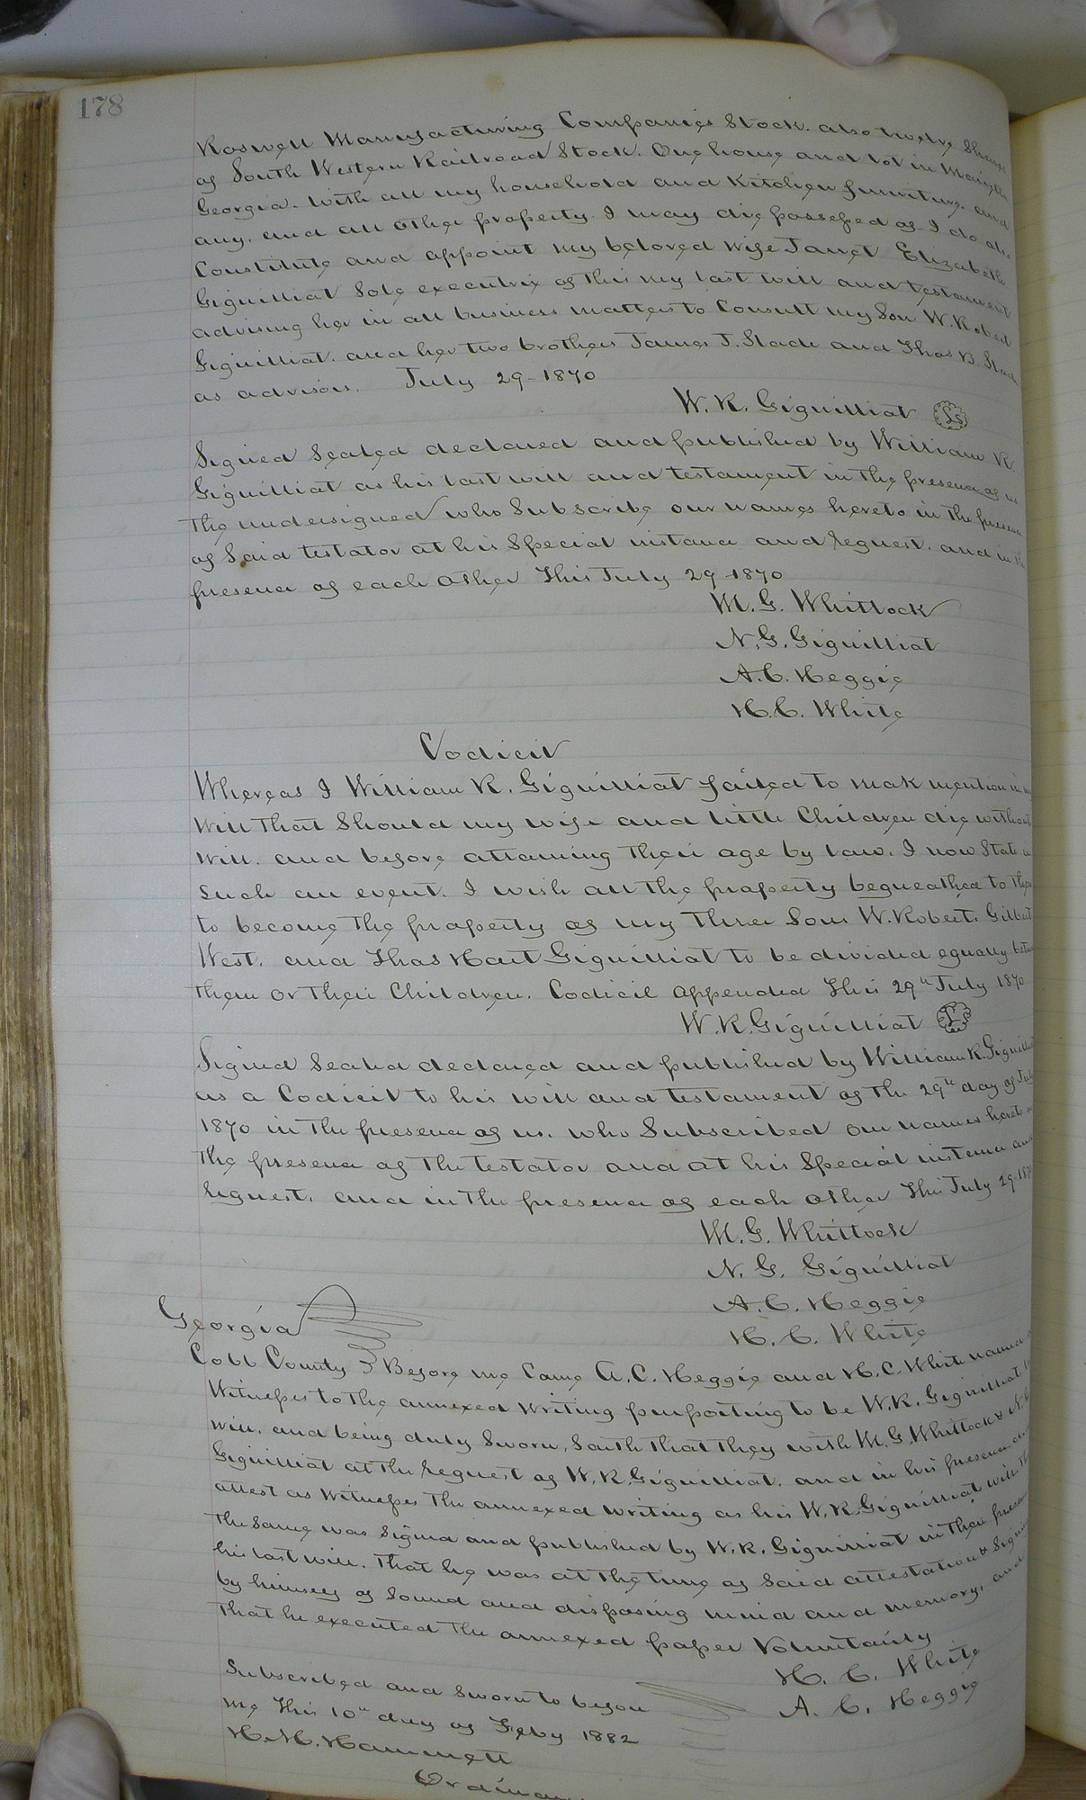 178
Roswell Manufacturing Companies Stock. also twelve Shares
of South Western Railroad Stock. One house and lot in
Georgia. With all my household and Kitchen furniture. and
any. and all other property I may die possessed of. I do als.
Constitute and appoint my beloved wife Janet Elizabeth
Gignilliat Sole executrix of this my last will and testament
advising her in all business matters to Consult my Son W. Robert
Gignilliat. and her two brothers James J. Slade and Thos B. Slade
as advisors. July 29-1870
W. R. Gignilliat LS
Signed Sealed declared and published by William R
Gignilliat as his last will and testament in the presence of us
the undersigned who Subscribe our names hereto in the presence
of Said testator at his Special instance and request. and in the
presence of each other This July 29-1870
M. G. Whitlock
N. G. Gignilliat
A. C. Heggie
H. C. White
Codicil
Whereas I William R. Gignilliat failed to mak mention in my
Will that Should my wife and little Children die without
Will. and before attaining their age by law. I now State in
such an event. I wish all the property bequeathed to them
to become the property of my three Sons W. Robert. Gilbert
West. and Thos Hart Gignilliat to be divided equally between
them or their Children. Codicil appended This 29th July 1870
W. R. Gignilliat LS
Signed Sealed declared and published by William R. Gignilliat
as a Codicil to his will and testament of the 29th day of July
1870 in the presence of us. who Subscribed our names hereto in
the presence of the testator and at his Special instance and
request. and in the presence of each other This July 29-1870
M. G. Whitlock
N. G. Gignilliat
A. C. Heggie
H. C. White
Georgia
Cobb County } Before me Came A. C. Heggie and H. C. White named
Witnesses to the annexed Writing purporting to be W. R. Gignilliat
will. and being duly Sworn, Saith that they with M. G. Whitlock & N. G.
Gignilliat at the request of W. R. Gignilliat. and in his presence did
attest as Witnesses the annexed Writing as his W. R. Gignilliat will. That
the Same was Signed and published by W. R. Gignilliat in their presence
his last will. That he was at the time of Said attestation & Signing
by himself of Sound and disposing mind and memory, and
that he executed the annexed paper Voluntarily
H. C. White
A. C. Heggie
Subscribed and Sworn to before
me This 10th day of Feby 1882
H. M. Hammett
Ordinary